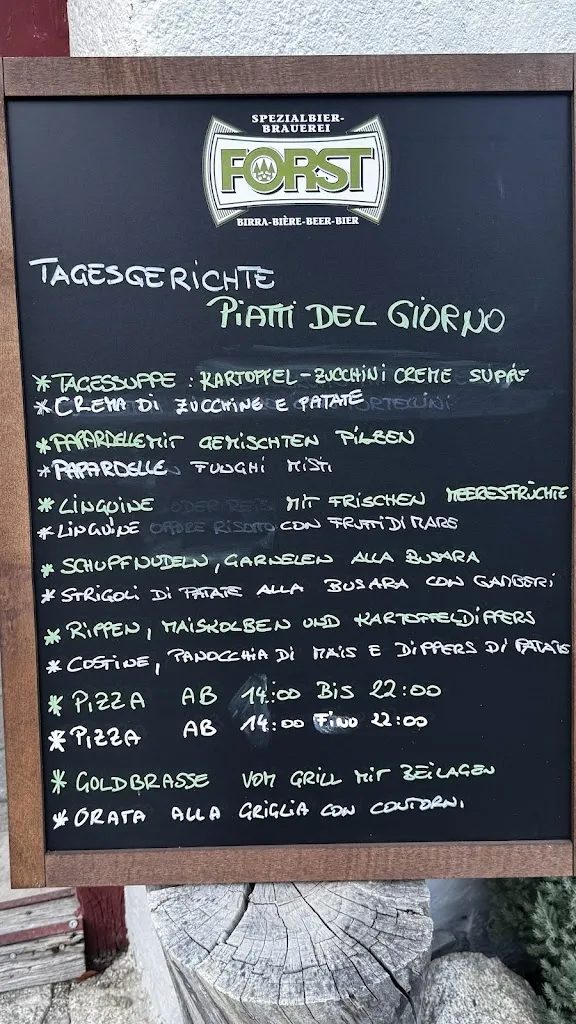 SPEZIALBIER-
BRAUEREI
FORST
BIRRA-BIÈRE-BEER-BIER
TAGESGERICHTE
PIATTI DEL GIORNO
* TAGESSUPPE : KARTOFFEL-ZUCCHINI CREME SUPPE
* CREMA DI ZUCCHINE E PATATE
* PAPARDELLE MIT GEMISCHTEN PILBEN
* PAPARDELLE FUNGHI MISTI
* LINGUINE ODER REIS MIT FRISCHEN MEERESFRÜCHTE
* LINGUINE OPPURE RISOTTO CON FRUTTI DI MARE
* SCHUPFNUDELN, GARNELEN ALLA BUSARA
* STRIGOLI DI PATATE ALLA BUSARA CON GAMBERI
* RIPPEN, MAISKOLBEN UND KARTOFFELDIPPERS
* COSTINE, PANOCCHIA DI MAIS E DIPPERS DI PATATE
* PIZZA AB 14:00 BIS 22:00
* PIZZA AB 14:00 FINO 22:00
* GOLDBRASSE VOM GRILL MIT BEILAGEN
* ORATA ALLA GRIGLIA CON CONTORNI